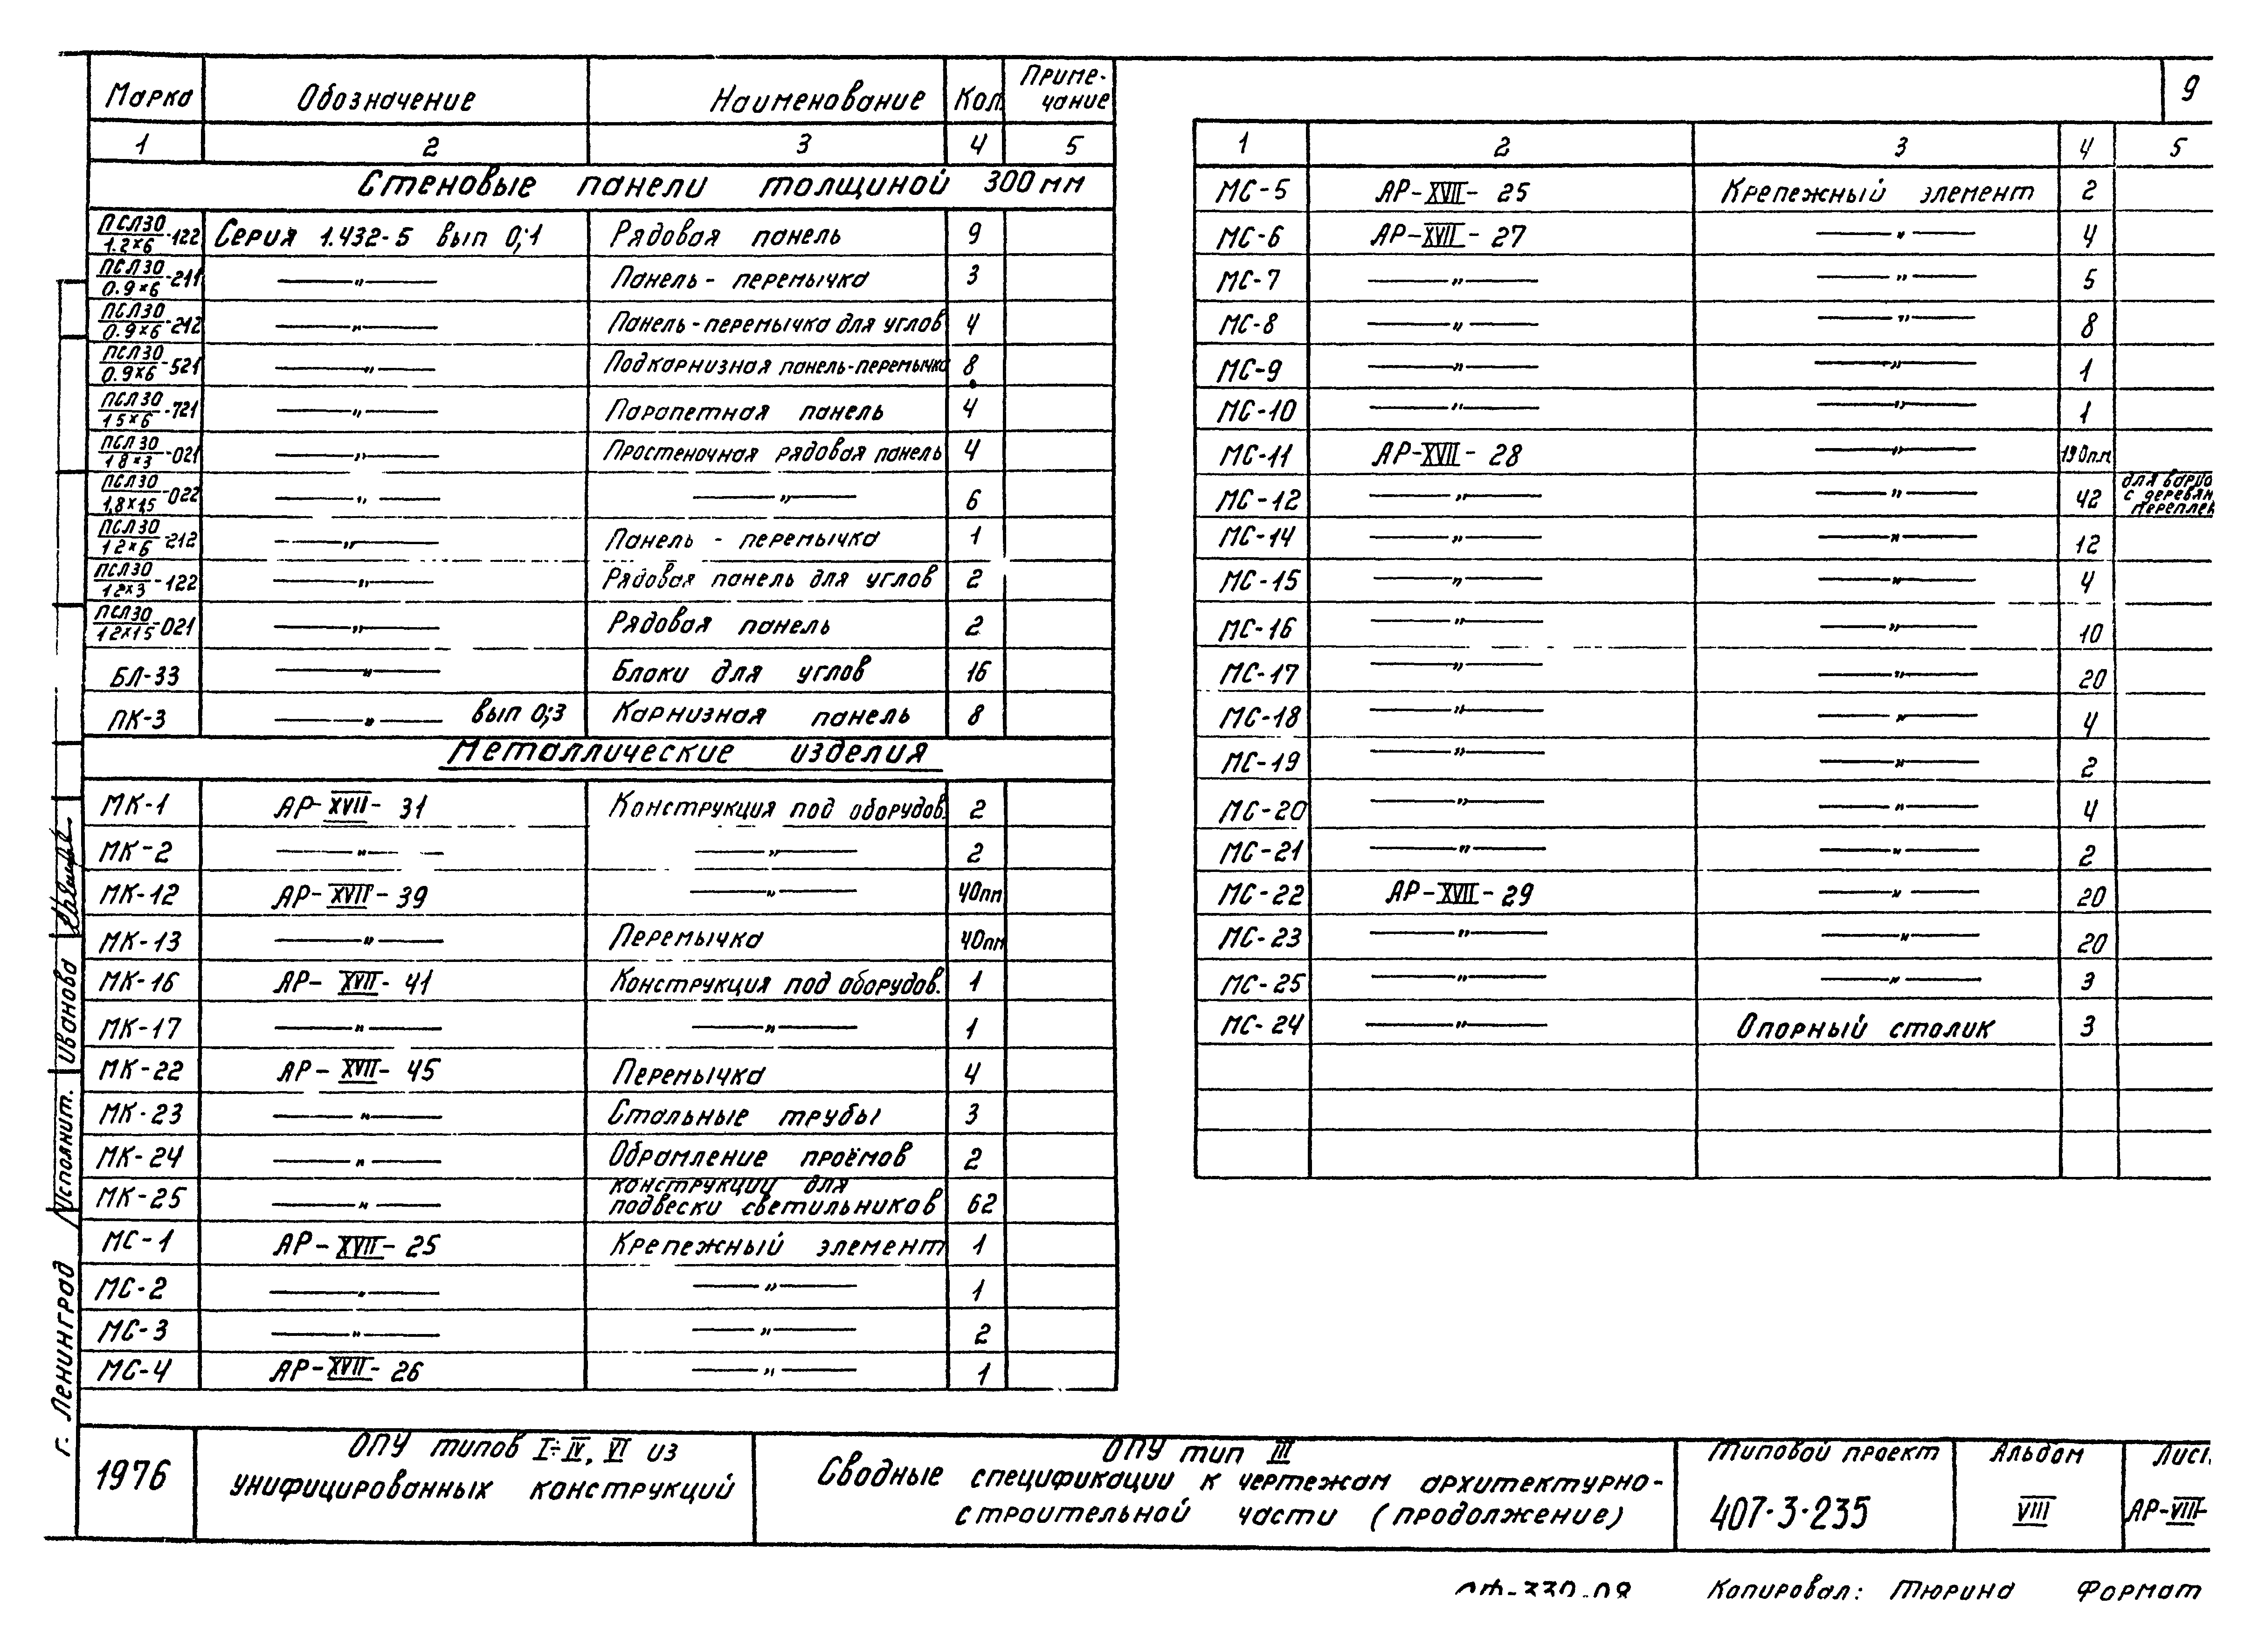 9
Марка Обозначение Наименование Кол. Приме-чание
1 2 3 4 5
Стеновые панели толщиной 300 мм
ПСЛ30/1.2×6-122 Серия 1.432-5 вып 0;1 Рядовая панель 9
ПСЛ30/0.9×6-211 —„— Панель-перемычка 3
ПСЛ30/0.9×6-212 —„— Панель-перемычка для углов 4
ПСЛ30/0.9×6-521 —„— Подкарнизная панель-перемычка 8
ПСЛ30/15×6-721 —„— Парапетная панель 4
ПСЛ30/18×3-021 —„— Простеночная рядовая панель 4
ПСЛ30/1,8×15-022 —„— —„— 6
ПСЛ30/12×6-212 —„— Панель - перемычка 1
ПСЛ30/12×3-122 —„— Рядовая панель для углов 2
ПСЛ30/12×15-021 —„— Рядовая панель 2
БЛ-33 —„— Блоки для углов 16
ПК-3 —„— вып 0;3 Карнизная панель 8
Металлические изделия
МК-1 АР-XVII-31 Конструкция под оборудов. 2
МК-2 —„— —„— 2
МК-12 АР-XVII-39 —„— 40пм
МК-13 —„— Перемычка 40пм
МК-16 АР-XVII-41 Конструкция под оборудов. 1
МК-17 —„— —„— 1
МК-22 АР-XVII-45 Перемычка 4
МК-23 —„— Стальные трубы 3
МК-24 —„— Обрамление проёмов 2
МК-25 —„— конструкции для подвески светильников 62
МС-1 АР-XVII-25 Крепежный элемент 1
МС-2 —„— —„— 1
МС-3 —„— —„— 2
МС-4 АР-XVII-26 —„— 1
1 2 3 4 5
МС-5 АР-XVII-25 Крепежный элемент 2
МС-6 АР-XVII-27 —„— 4
МС-7 —„— —„— 5
МС-8 —„— —„— 8
МС-9 —„— —„— 1
МС-10 —„— —„— 1
МС-11 АР-XVII-28 —„— 190п.м
МС-12 —„— —„— 42 для вариа с деревян переплет
МС-14 —„— —„— 12
МС-15 —„— —„— 4
МС-16 —„— —„— 10
МС-17 —„— —„— 20
МС-18 —„— —„— 4
МС-19 —„— —„— 2
МС-20 —„— —„— 4
МС-21 —„— —„— 2
МС-22 АР-XVII-29 —„— 20
МС-23 —„— —„— 20
МС-25 —„— —„— 3
МС-24 —„— Опорный столик 3
г. Ленинград Исполнит. Иванова
1976
ОПУ типов I÷IV, VI из
унифицированных конструкций
ОПУ тип III
Сводные спецификации к чертежам архитектурно-
строительной части (продолжение)
Типовой проект
407-3-235
Альбом
VIII
Лист
АР-VIII-
Копировал: Тюрина Формат